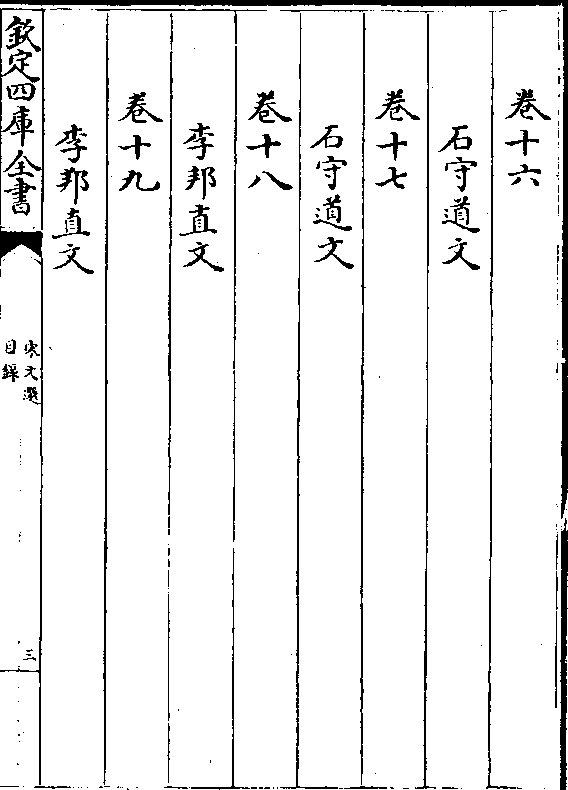 卷十六
石守道文
卷十七
石守道文
卷十八
李邦直文
卷十九
李邦直文
欽定四庫全書
宋文選
目錄
三